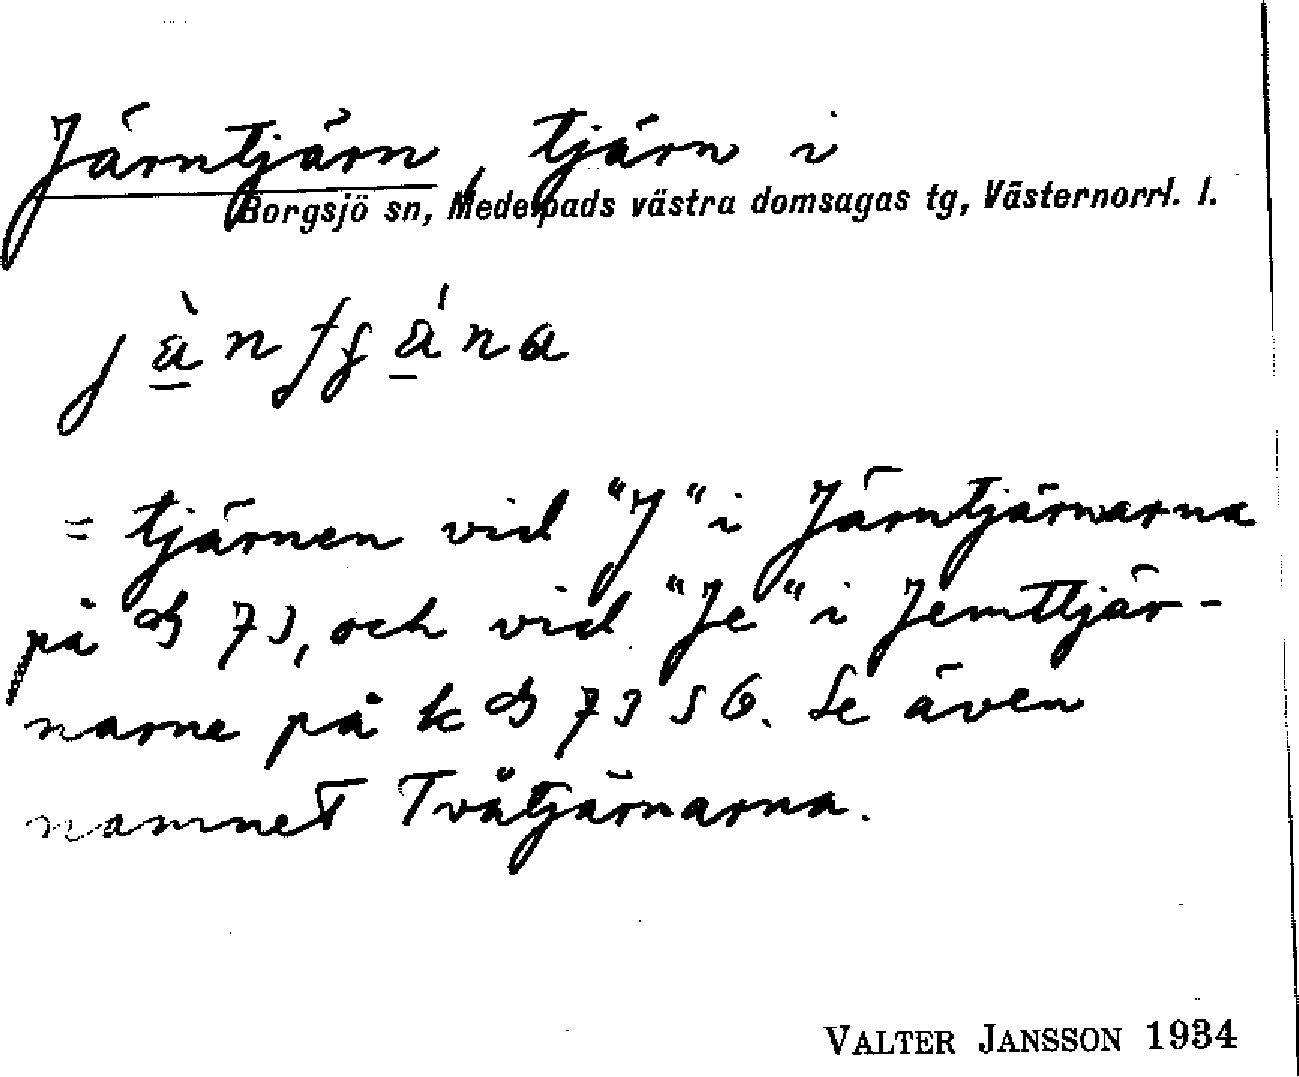 Järntjärn, tjärn i
Borgsjö sn, Medelpads västra domsagas tg, Västernorrl. l.
= tjärnen vid "J" i Järntjärnarna
på 73, och vid "Je" i Jemttjär-
narne på k 73 S 6. Se även
namnet Tvåtjärnarna.
VALTER JANSSON 1934